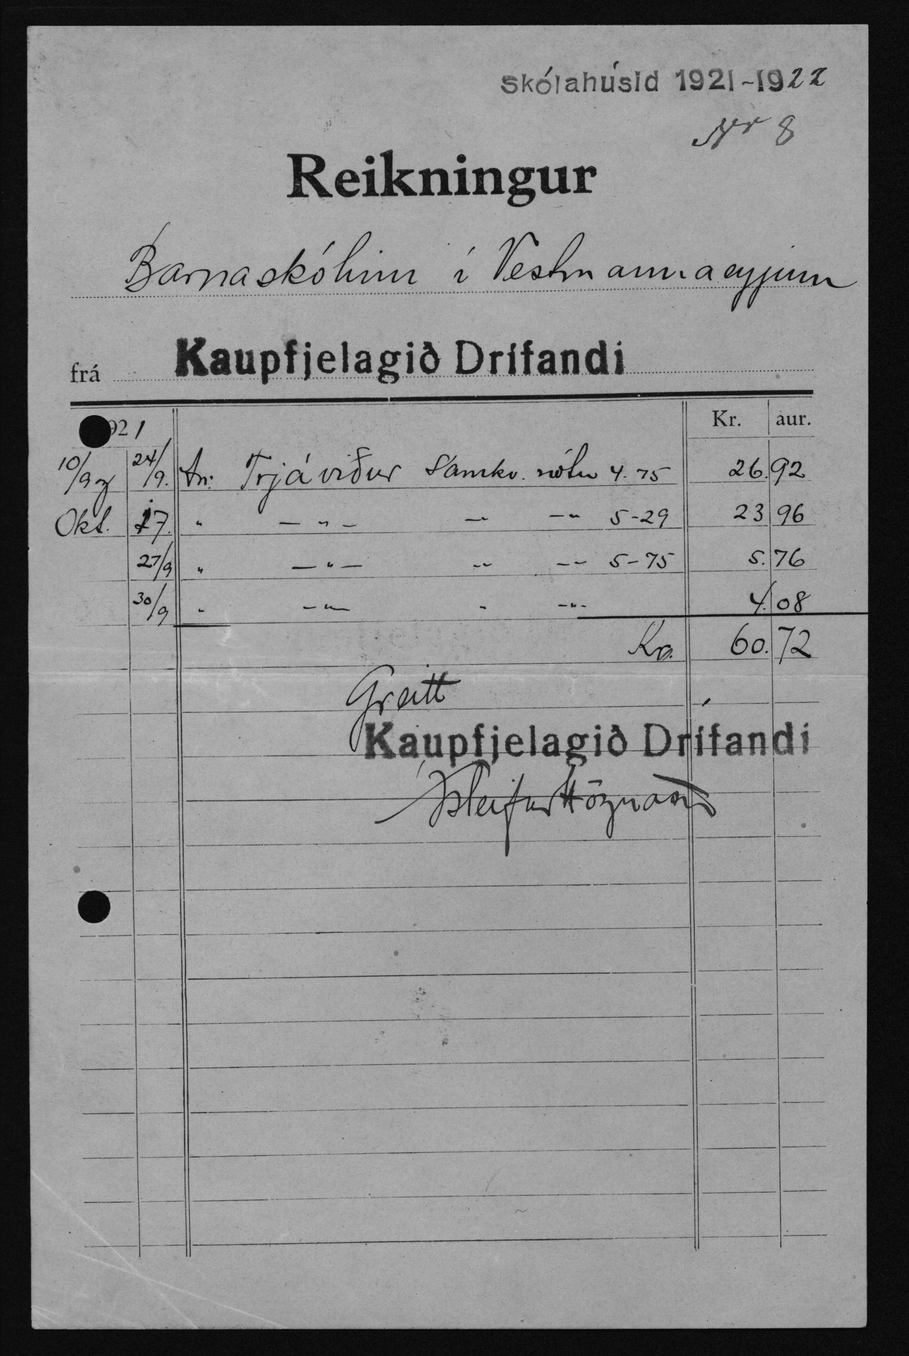 Skólahúsid 1921-1922
Nr 8
Reikningur
Barnaskólinn í Vestmannaeyjum
frá Kaupfjelagið Drífandi
1921 Kr. aur.
10/9 og 24/9. Trjáviður Samkv. nótu 4.75 26.92
Okt. 17. " — " — — — " 5-29 23 96
27/9 " — " — — " — — 5-75 5.76
30/9 " — " — " — " — 4.08
Kr. 60.72
Greitt
Kaupfjelagið Drífandi
Ísleifur Högnason